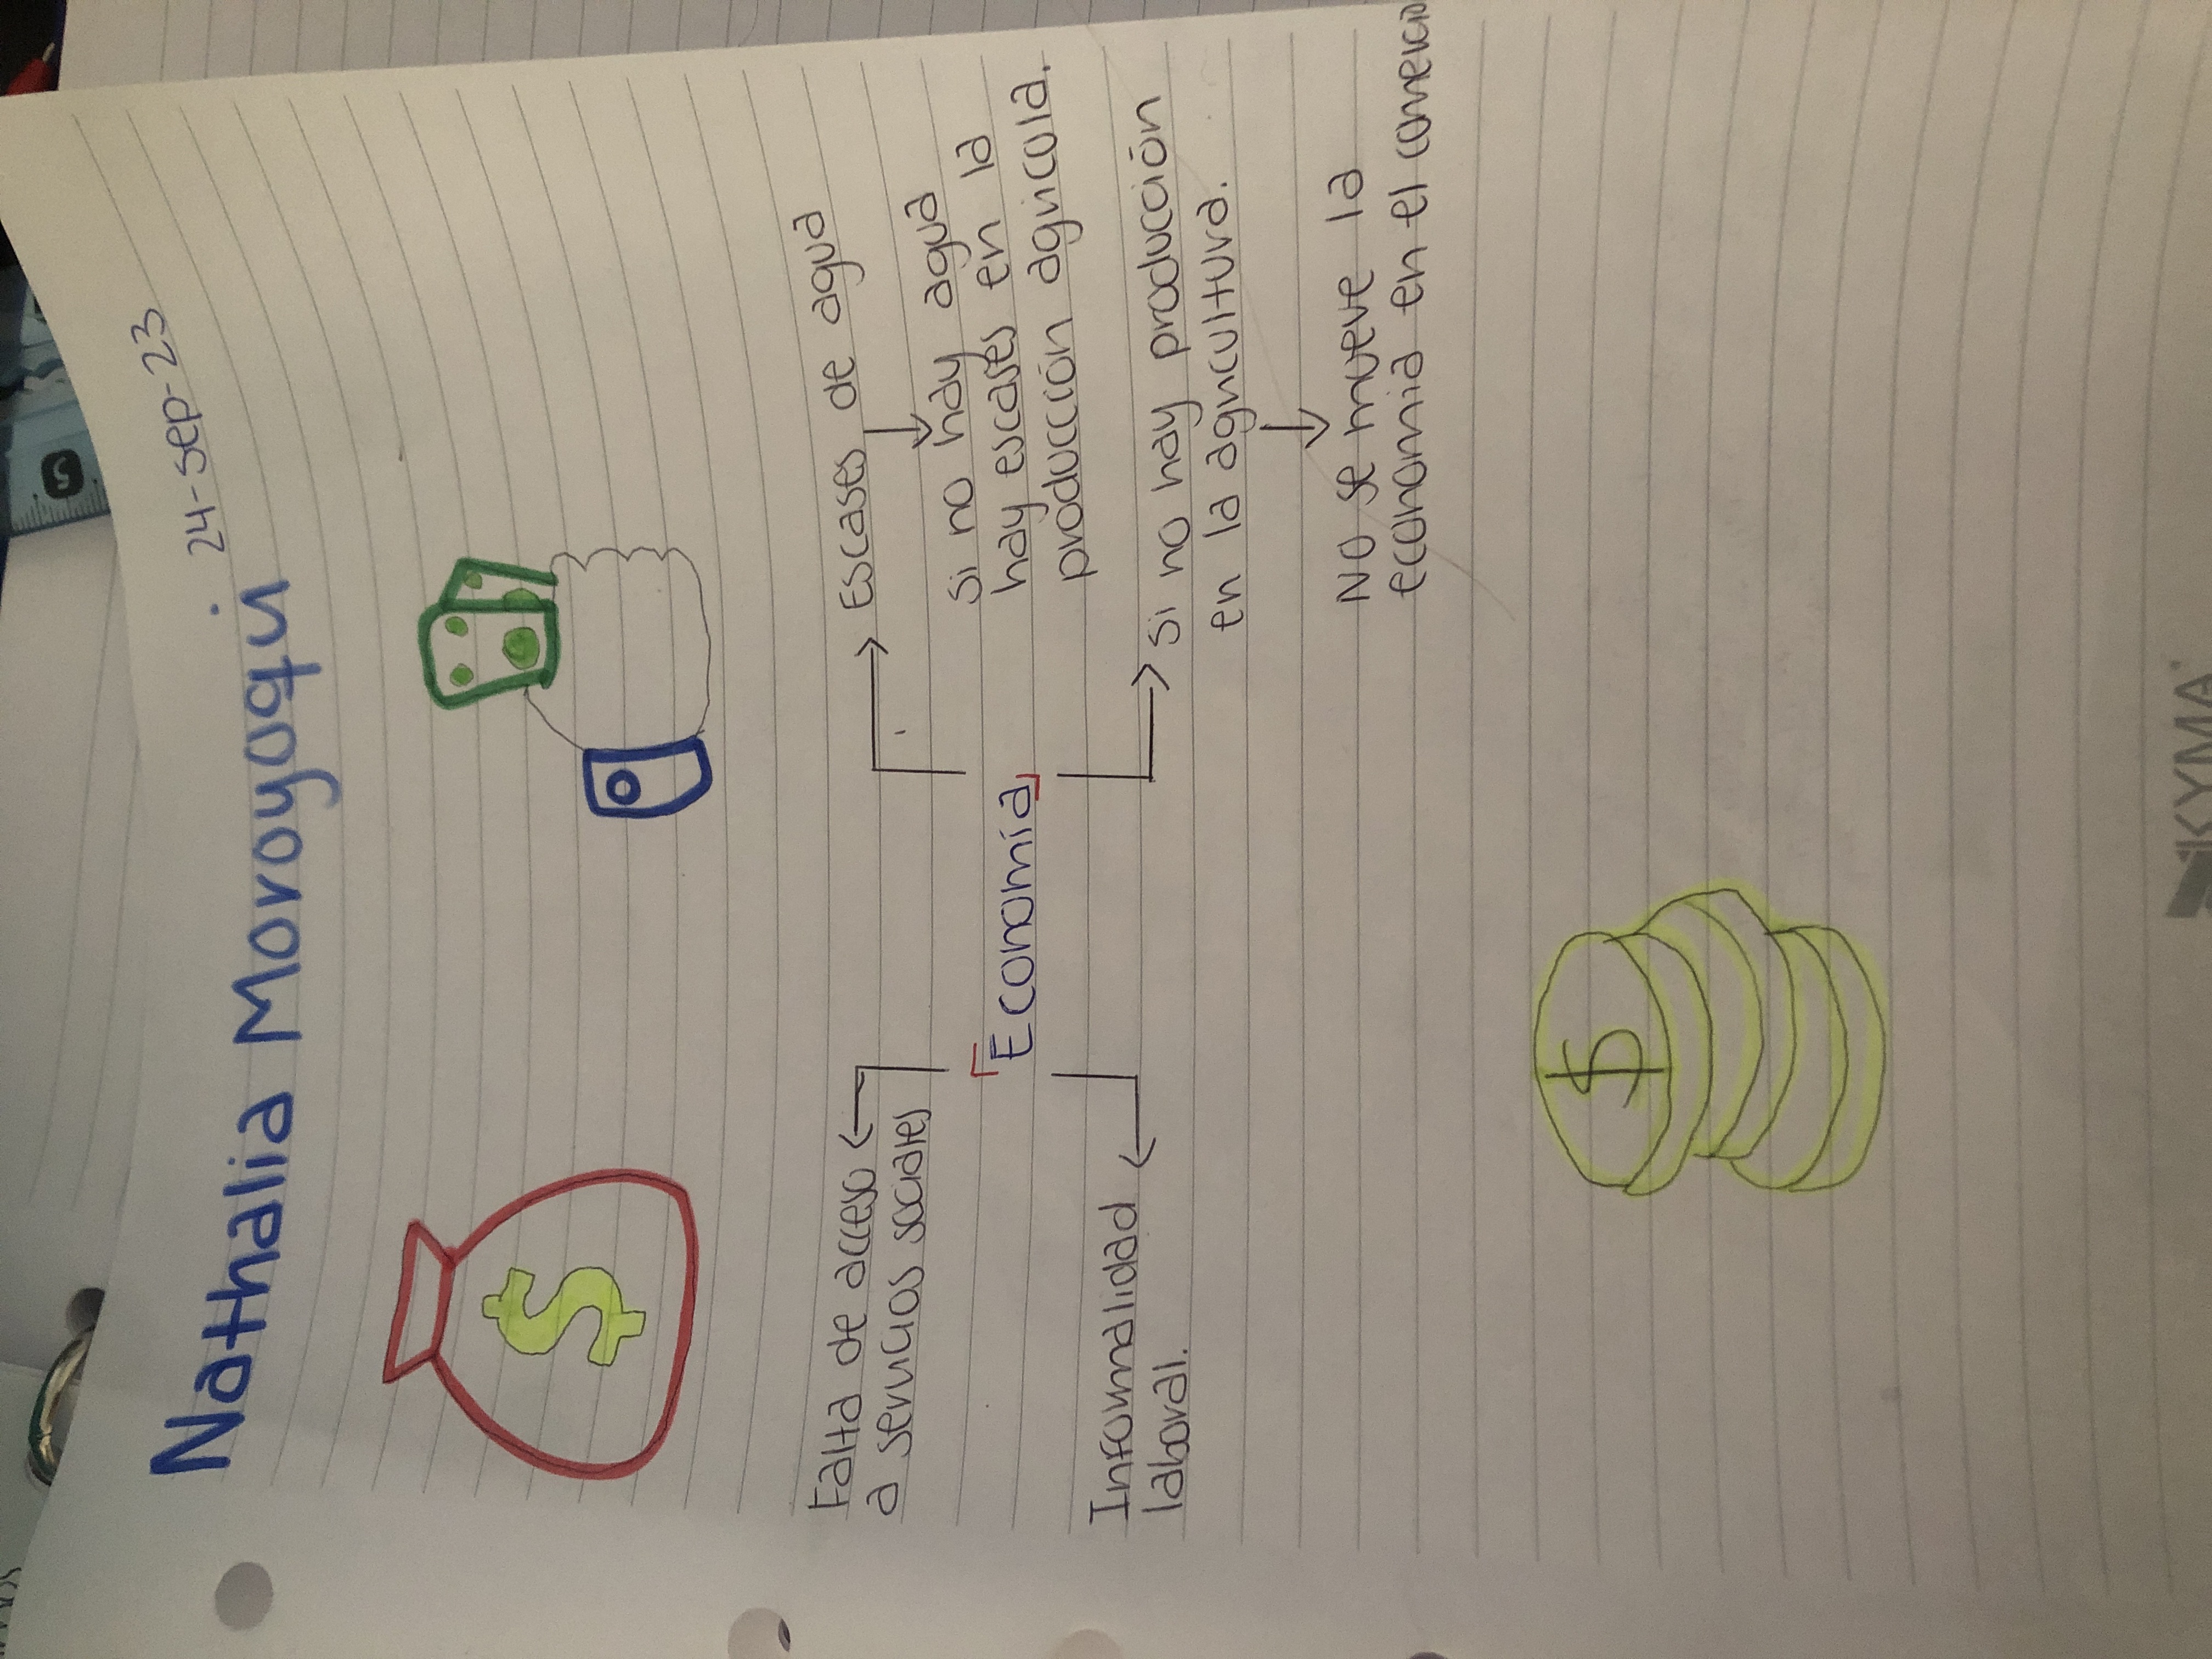 Nathalia Moroyoqui 24-sep-23
Falta de acceso
a servicios sociales
Escases de agua
Si no hay agua
hay escases en la
producción agricula.
Economía
Informalidad
laboral.
Si no hay producción
en la agricultura.
No se mueve la
economia en el comercio
$
$
KYMA
5